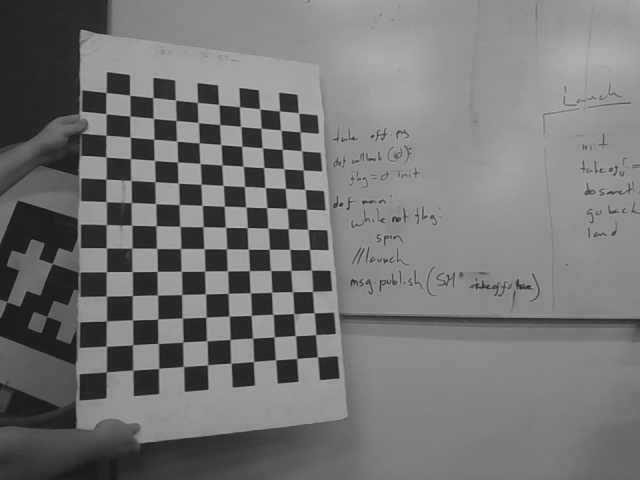 take off ms
def callback (d):
flag = d.init
def main:
while not flag:
spin
//launch
msg.publish (SM
Launch
init
takeoff
go back
land